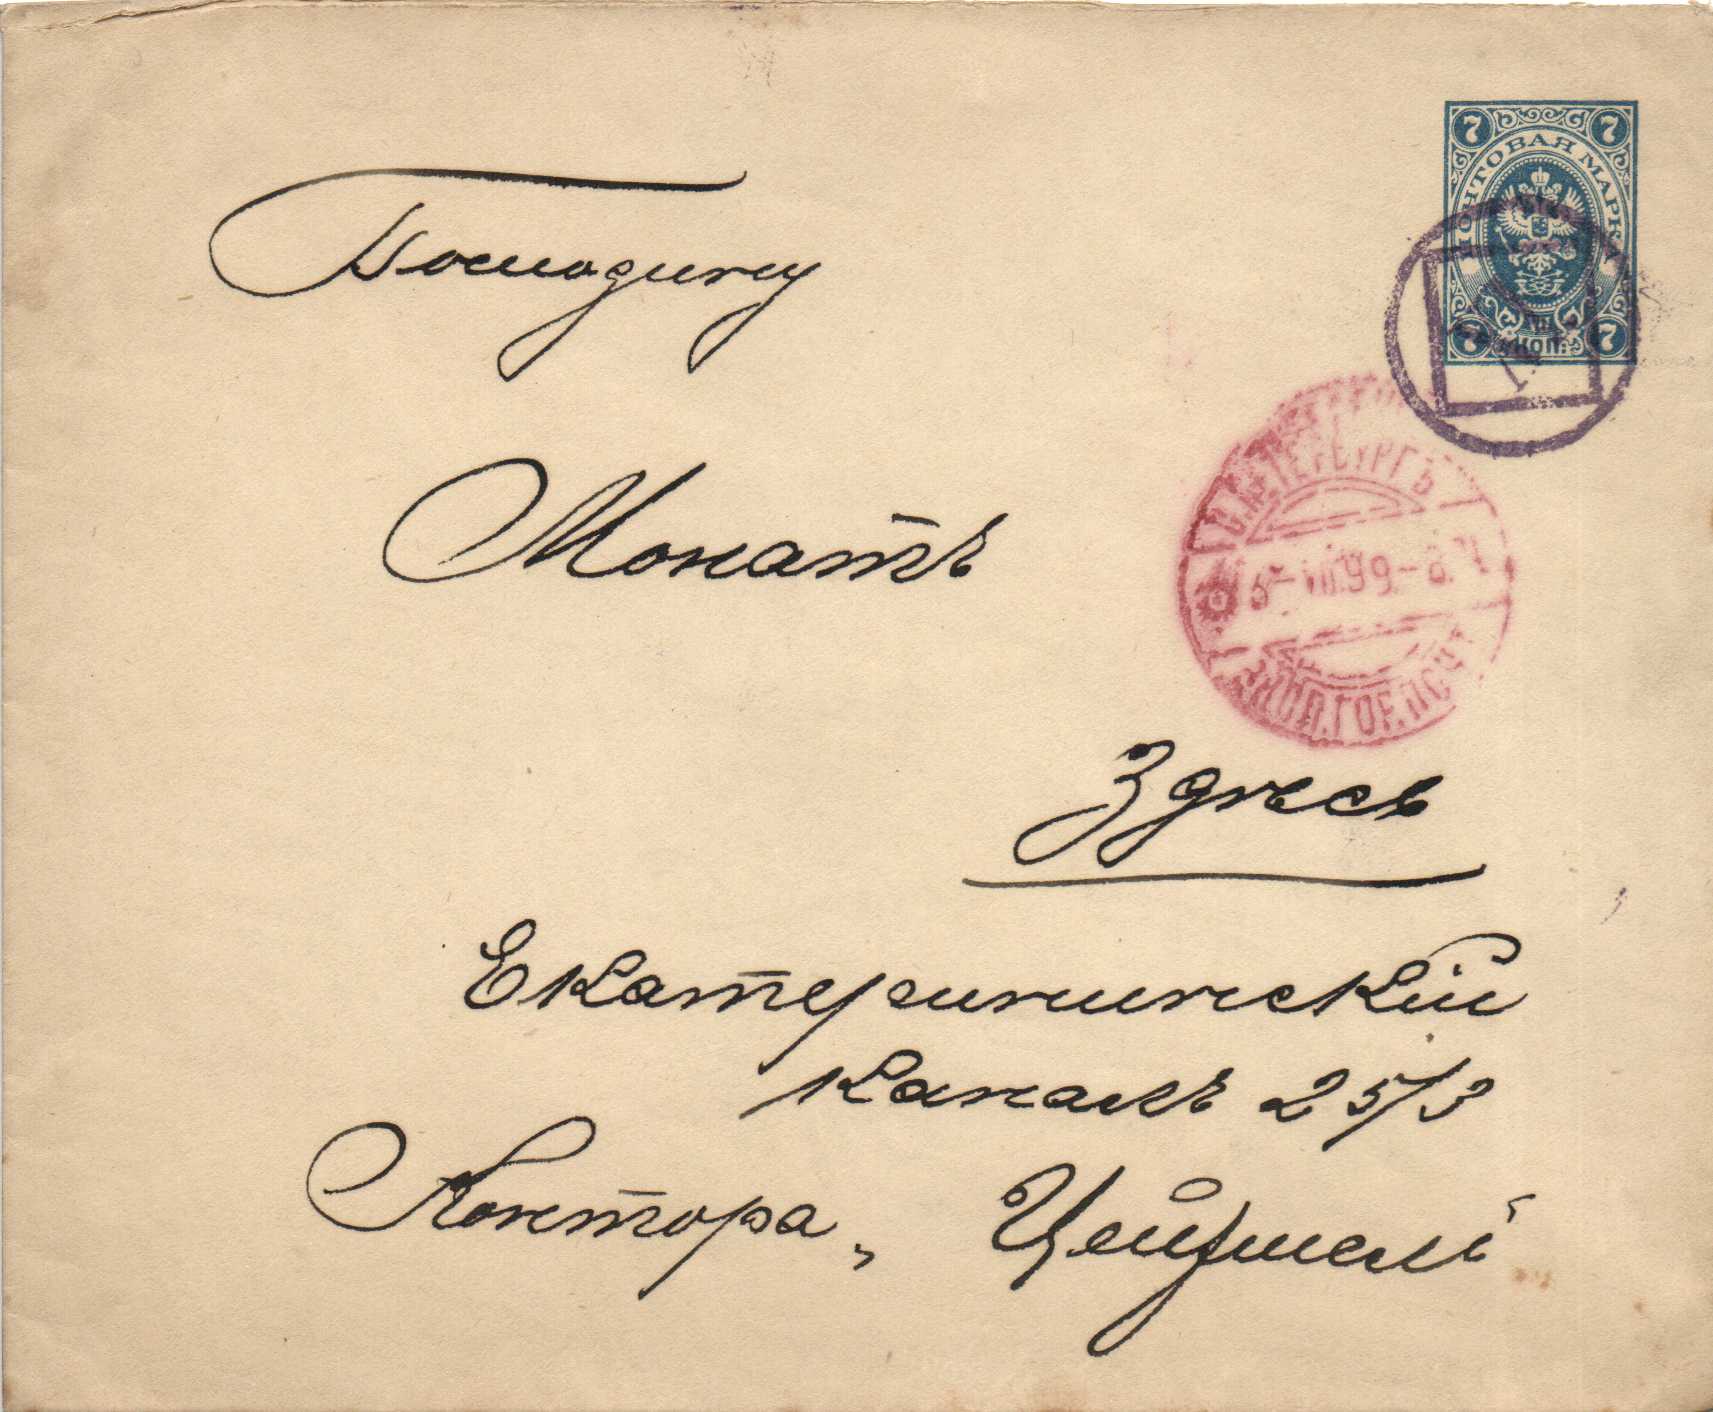 7 7
ПОЧТОВАЯ МАРКА
7 КОП. 7
Господину
Монатъ
С.ПЕТЕРБУРГЪ
VII.99
ГОР. ПОЧТ
Здѣсь
Екатерининскій
каналъ 25/3
Контора „